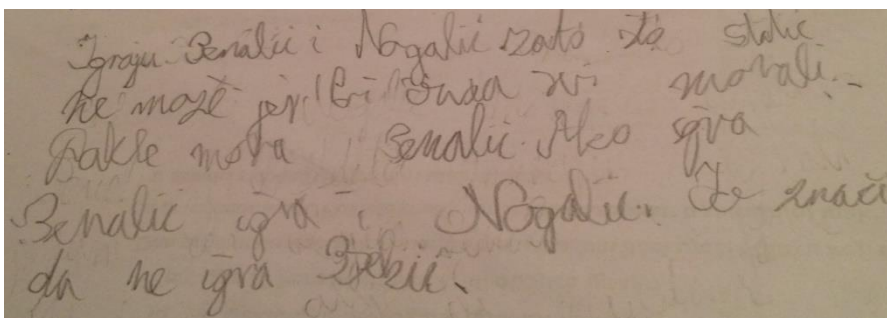 Igraju Benalić i Nogalić zato što stolić
ne može jer bi onda svi morali.
Dakle mora Benalić. Ako igra
Benalić igra i Nogalić. To znači
da ne igra